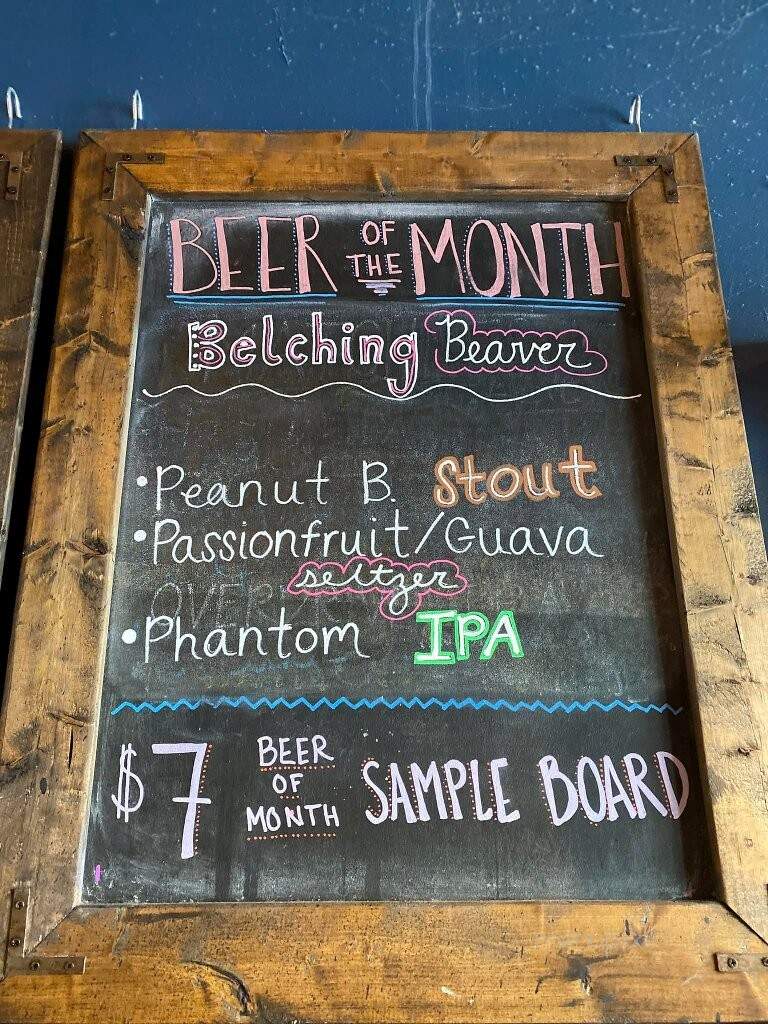 BEER OF THE MONTH
Belching Beaver
• Peanut B. Stout
• Passionfruit/Guava
seltzer
• Phantom IPA
$7 BEER OF MONTH SAMPLE BOARD